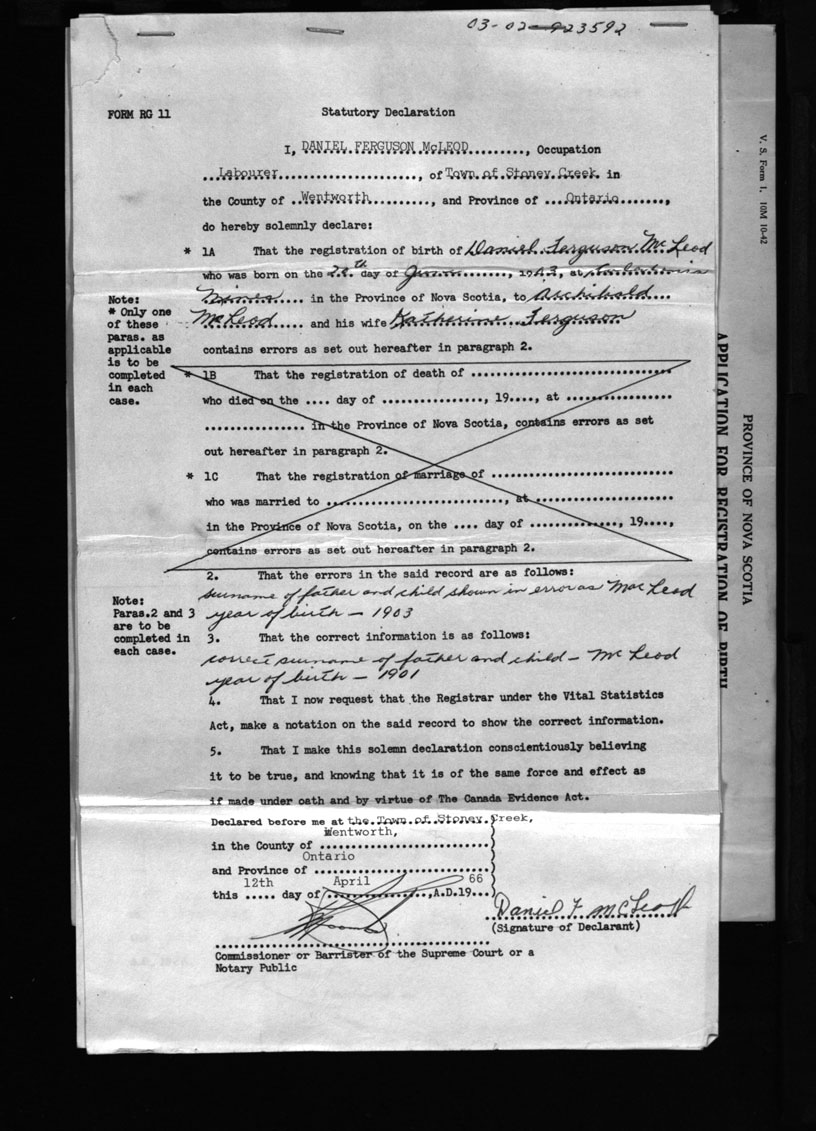 03-02-923592
FORM RG 11
Statutory Declaration
I, DANIEL FERGUSON McLEOD.........., Occupation
...Labourer........................, of Town of Stoney Creek in
the County of ..Wentworth.........., and Province of ....Ontario.......,
do hereby solemnly declare:
* 1A That the registration of birth of Daniel Ferguson McLeod
who was born on the day of ........, 19 , at
Mines.... in the Province of Nova Scotia, to Archibald....
McLeod..... and his wife Katherine Ferguson
contains errors as set out hereafter in paragraph 2.
Note:
* Only one
of these
paras. as
applicable
is to be
completed
in each
case.
* 1B That the registration of death of ................................
who died on the .... day of ................, 19...., at .................
................ in the Province of Nova Scotia, contains errors as set
out hereafter in paragraph 2.
* 1C That the registration of marriage of .............................
who was married to ............................, at ......................
in the Province of Nova Scotia, on the .... day of .............., 19....,
contains errors as set out hereafter in paragraph 2.
2. That the errors in the said record are as follows:
surname of father and child shown in error as MacLeod
year of birth - 1903
Note:
Paras.2 and 3
are to be
completed in
each case.
3. That the correct information is as follows:
correct surname of father and child - McLeod
year of birth - 1901
4. That I now request that the Registrar under the Vital Statistics
Act, make a notation on the said record to show the correct information.
5. That I make this solemn declaration conscientiously believing
it to be true, and knowing that it is of the same force and effect as
if made under oath and by virtue of The Canada Evidence Act.
Declared before me at the Town of Stoney Creek,
Wentworth,
in the County of ............................
Ontario
and Province of .............................
12th April 66
this ..... day of ................,A.D.19...
Daniel F McLeod
(Signature of Declarant)
Commissioner or Barrister of the Supreme Court or a
Notary Public
V. S. Form 1. 10M 10-42
PROVINCE OF NOVA SCOTIA
APPLICATION FOR REGISTRATION OF BIRTH